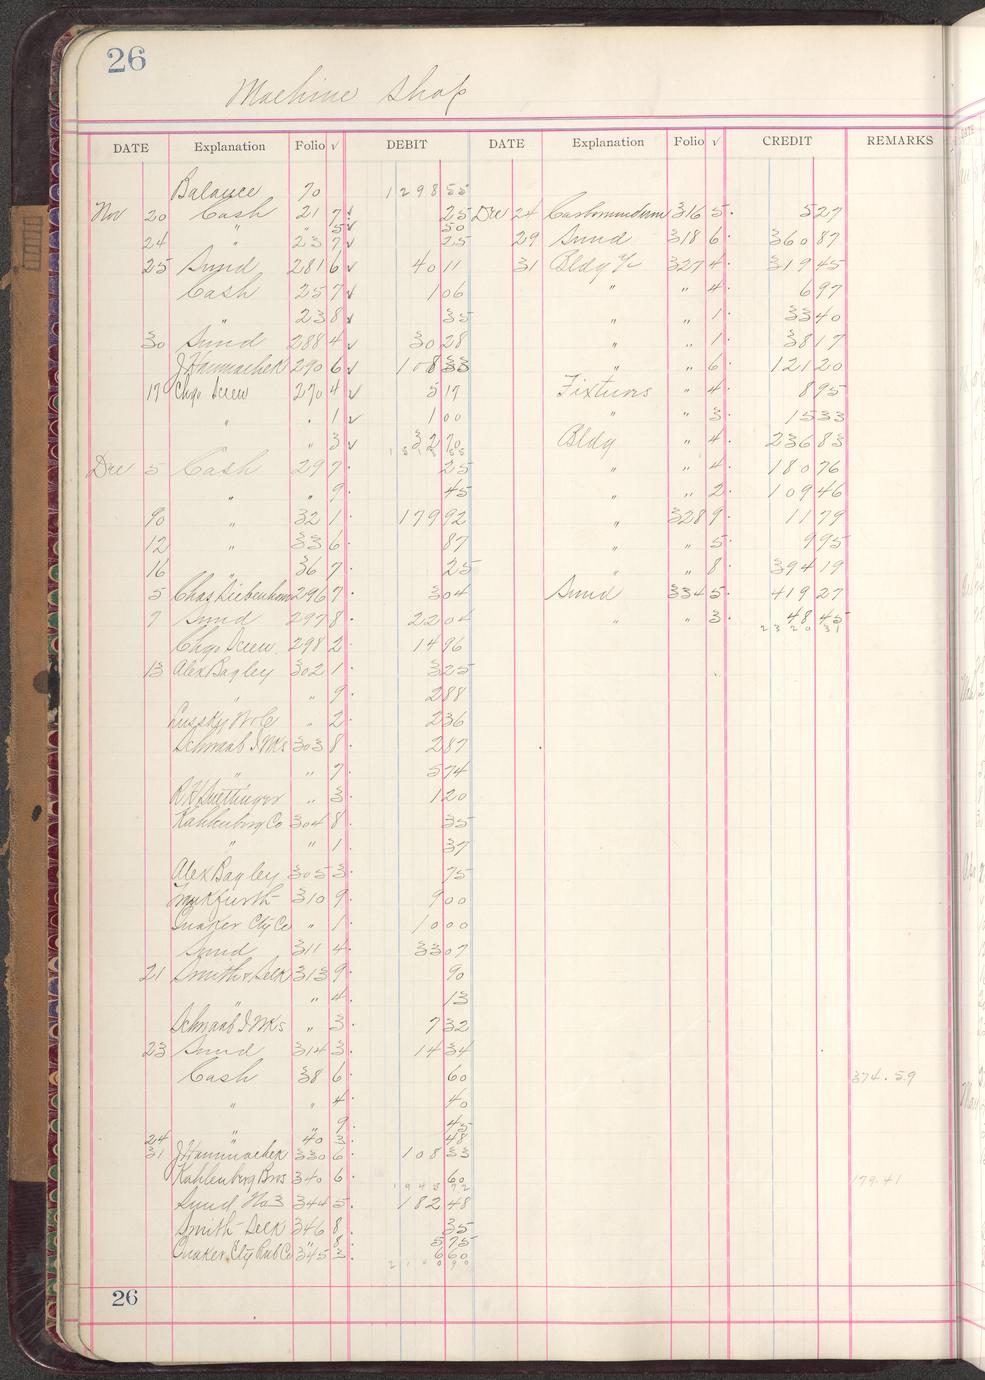 26
Machine Shop
DATE Explanation Folio √ DEBIT DATE Explanation Folio √ CREDIT REMARKS
Balance 70 1298 55
Nov 20 Cash 21 7 √ 25 Dec 24 316 5 5 27
" " 5 √ 50
24 " 23 7 √ 25 29 Sund 318 6 360 87
25 Sund 281 6 √ 40 11 31 Bldg 327 4 319 45
Cash 25 7 √ 1 06 " " 4 6 97
" 23 8 √ 35 " " 1 33 40
30 Sund 288 4 √ 30 28 " " 1 38 17
J Hamachek 290 6 √ 108 33 " " 6 121 20
17 Chgo Screw 270 4 √ 5 17 Fixtures " 4 8 95
" " 1 √ 1 00 " " 3 15 33
" 3 √ 32 70 Bldg " 4 236 83
Dec 5 Cash 29 7 25 " " 4 180 76
" " 9 45 " " 2 109 46
90 " 32 1 179 92 " 328 9 11 79
12 " 33 6 87 " " 5 9 95
16 " 36 7 25 " " 8 394 19
5 Chas Liebenham 296 7 3 04 Sund 334 5 419 27
7 Sund 297 8 22 04 " " 3 48 45
Chgo Screw 298 2 14 96 2320 31
13 Alex Bagley 302 1 3 25
" " 9 2 88
Lussky W & Co " 2 2 36
Schwaab I Wks 303 8 2 87
" " 7 5 74
" 3 1 20
Kahlenberg Co 304 8 35
" " 1 37
Alex Bagley 305 3 75
Frankfurth 310 9 9 00
Quaker Cty Co " 1 10 00
Sund 311 4 33 07
21 Smith & Selk 313 9 90
" " 4 13
Schwaab I Wks " 3 7 32
23 Sund 314 3 14 34
Cash 38 6 60 374.59
" " 4 40
" " 9 45
24 " 40 3 48
31 J Hamachek 330 6 108 33
Kahlenberg Bros 340 6 60 179.41
1945 72
Sund No 3 344 5 182 48
Smith Selk 346 8 35
" 8 5 75
Quaker Cty Rub Co 345 3 6 60
26